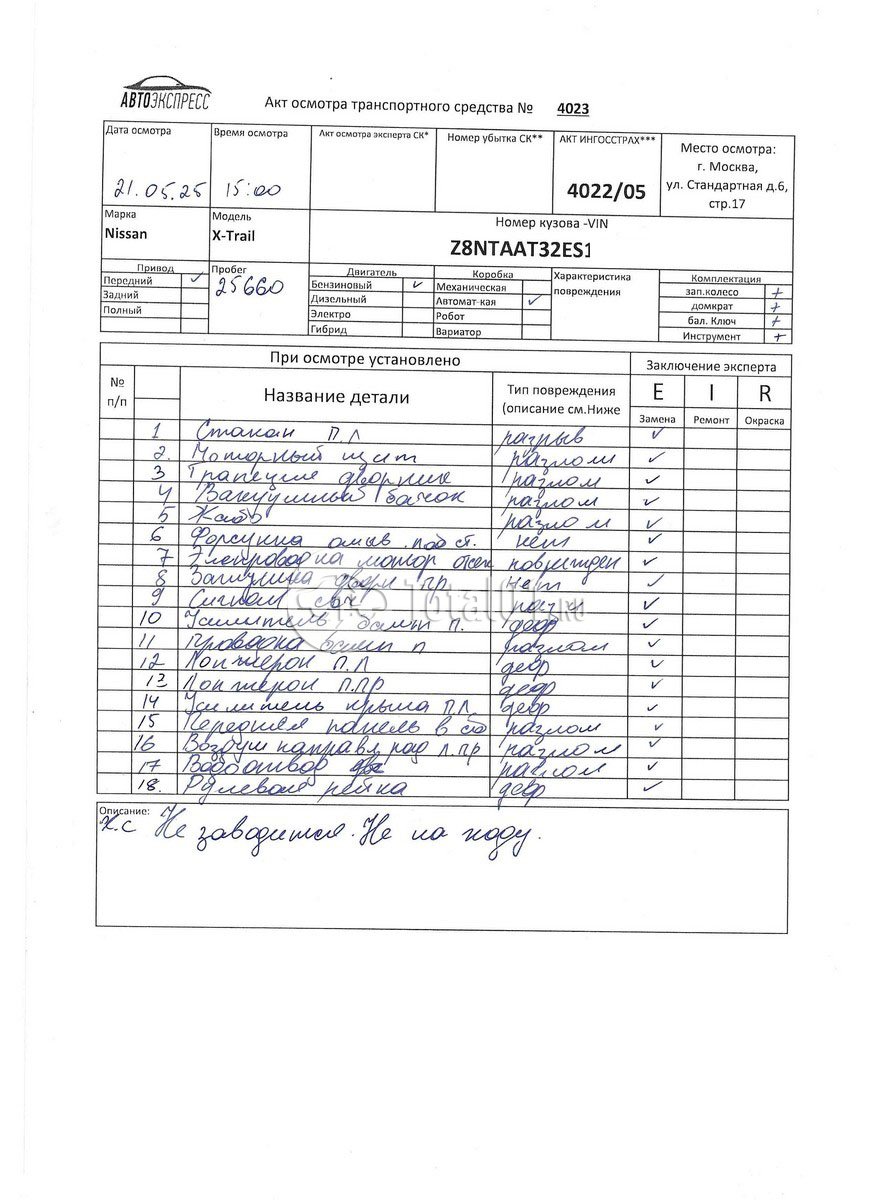 АВТОЭКСПРЕСС
Акт осмотра транспортного средства № 4023
Дата осмотра Время осмотра Акт осмотра эксперта СК* Номер убытка СК** АКТ ИНГОССТРАХ*** Место осмотра:
г. Москва,
21.05.25 15:00 4022/05 ул. Стандартная д.6,
стр.17
Марка Модель Номер кузова -VIN
Nissan X-Trail Z8NTAAT32ES1
Привод Пробег Двигатель Коробка Характеристика Комплектация
Передний ✓ 25660 Бензиновый ✓ Механическая повреждения зап.колесо +
Задний Дизельный Автомат-кая ✓ домкрат +
Полный Электро Робот бал. Ключ +
Гибрид Вариатор Инструмент +
При осмотре установлено Заключение эксперта
№ п/п Название детали Тип повреждения (описание см.Ниже E I R
Замена Ремонт Окраска
1 Стакан П.Л разрыв ✓
2. Моторный щит разлом ✓
3 Трапеция дворник разлом ✓
4 Вакуумный бачок разлом ✓
5 Жабо разлом ✓
6 Форсунка омыв. лоб ст. нет ✓
7 Элпроводка мотор отсек поврежден ✓
8 Заглушка двери пр нет ✓
9 Сигнал ✓
10 Усилитель бампп п. деф ✓
11 Проводка бамп п разлом ✓
12 Лонжерон П.Л деф ✓
13 Лонжерон П.ПР деф ✓
14 Усилитель крыла П.Л. деф ✓
15 Передняя панель в сб разлом ✓
16 Воздух направл рад л.пр разлом ✓
17 Водоотвод разлом ✓
18. Рулевая рейка деф ✓
Описание:
Х.С Не заводится. Не на ходу.
Total01.RU